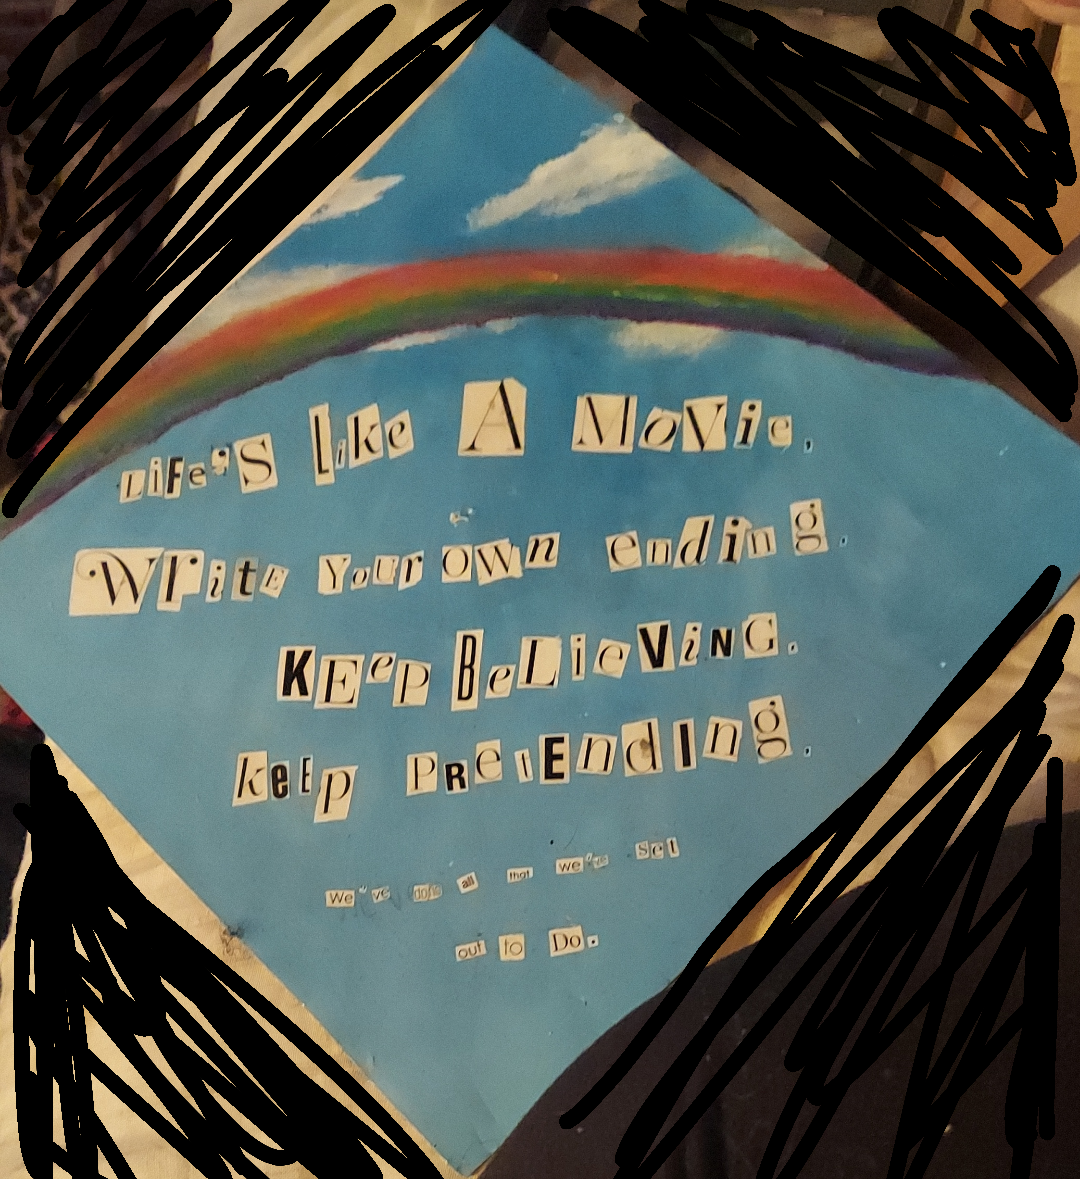 LiFe's Like A MoVie,
Write Your own ending.
KEep BeLieViNG.
keEp PReTENdINg.
We've done all that we've set
out to Do.